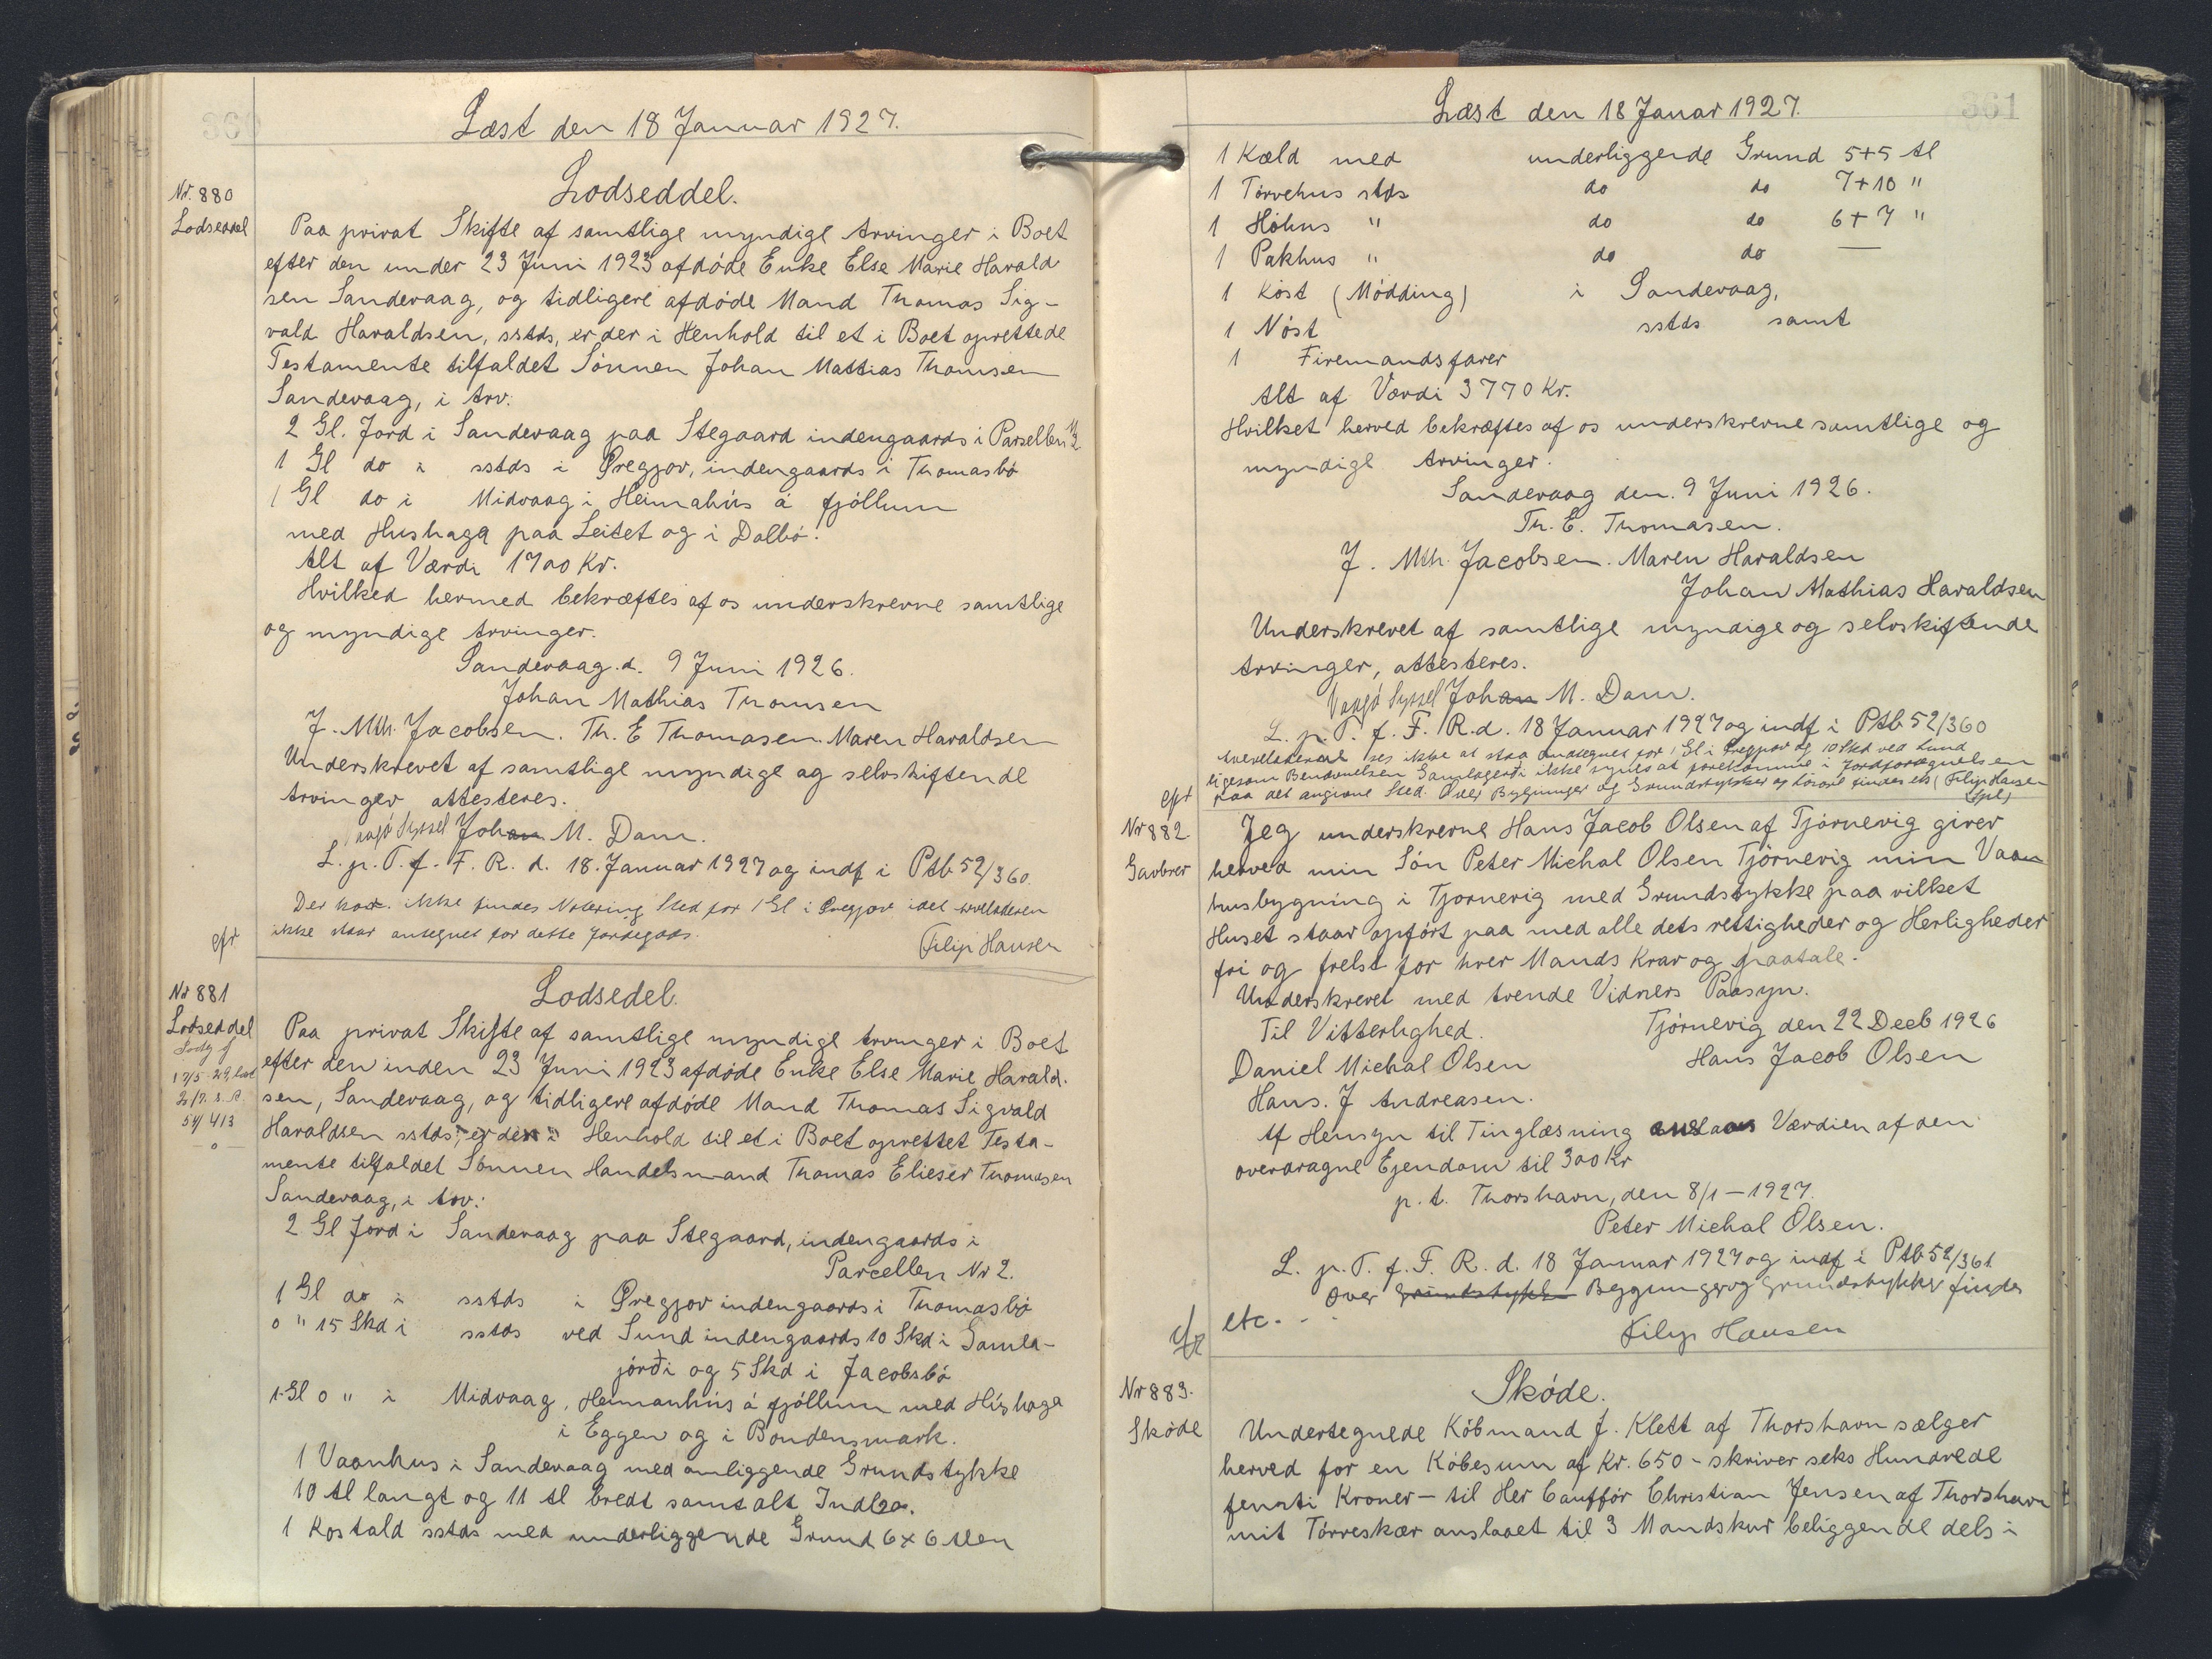 360
Læst den 18 Januar 1927.
Nr. 880
Lodseddel
Lodseddel.
Paa privat Skifte af samtlige myndige Arvinger i Boet
efter den under 23 Juni 1923 afdøde Enke Else Marie Harald
sen Sandevaag, og tidligere afdøde Mand Thomas Sig-
vald Haraldsen, sstds, er der i Henhold til et i Boet oprettede
Testamente tilfaldet Sønnen Johan Mattias Thomsen
Sandevaag, i Arv:
2 Gl. Jord i Sandevaag paa Stegaard indengaards i Parsellen
1 Gl do i sstds i Øregjov, indengaards i Thomasbø
1 Gl do i Midvaag i Heimahús á fjøllum
med Hushaga paa Leitet og i Dalbø.
Alt af Værdi 1700 Kr.
Hvilked hermed bekræftes af os underskrevne samtlige
og myndige Arvinger.
Sandevaag. d. 9 Juni 1926.
Johan Mathias Thomsen
J. Mth. Jacobsen. Th. E Thomasen. Maren Haraldsen
Underskrevet af samtlige myndige og selvskiftende
Arvinger attesteres.
Vaagø Syssel Johan M. Dam.
L. p. T. f. F. R. d. 18. Januar 1927 og indf i Ptb 52/360.
Der ikke findes Notering Sted for 1 Gl i Øregjov idet Arveladeren
ikke staar antegnet for dette Jordegods.
Filip Hansen
cfr
Nr 881
Lodseddel
17/5 - 29, læst
54/413
Lodsedel.
Paa privat Skifte af samtlige myndige Arvinger i Boet
efter den inden 23 Juni 1923 afdøde Enke Else Marie Harald-
sen, Sandevaag, og tidligere afdøde Mand Thomas Sigvald
Haraldsen sstds, er der i Henhold til et i Boet oprettet Testa-
mente tilfaldet Sønnen Handelsmand Thomas Elieser Thomasen
Sandevaag, i Arv:
2 Gl Jord i Sandevaag paa Stegaard, indengaards i
Parcellen Nr 2.
1 Gl do i sstds i Øregjov indengaards i Thomasbø
0 " 15 Skd i sstds ved Lund indengaards 10 Skd i Gamla-
jørði og 5 Skd i Jacobsbø
1 Gl o " i Midvaag, Heimanhús á fjøllum med Húshaga
i Eggen og i Bondensmark.
1 Vaanhus i Sandevaag med omliggende Grundstykke
10 Al langt og 11 Al bredt samt alt Indbo.
1 Kostald sstds med underliggende Grund 6 x 6 Alen
361
Læst den 18 Januar 1927.
1 Kæld med underliggende Grund 5+5 Al
1 Tørvehus stds do do 7+10 "
1 Høhus " do do 6+7 "
1 Pakhus " do do —
1 Køst (Mødding) i Sandevaag,
1 Nøst sstds samt
1 Firemandsfarer
Alt af Værdi 3770 Kr.
Hvilket herved bekræftes af os underskrevne samtlige og
myndige Arvinger.
Sandevaag den. 9 Juni 1926.
Th. E. Thomasen.
J. Mth. Jacobsen. Maren Haraldsen
Johan Mathias Haraldsen
Underskrevet af samtlige myndige og selvskiftende
Arvinger, attesteres.
Vaagø Syssel Johan M. Dam.
L. p. T. f. F. R. d. 18 Januar 1927 og indf i Ptb 52/360
Arveladeren ses ikke at staa antegnet for 1 Gl i Øregjov og 10 Skd ved Lund
ligesom Benævnelsen Gamlajørði ikke synes at forekomme i Jordfortegnelsen
paa det angivne Sted. Over Bygninger og Grundstykker og Løsøre findes etc (Filip Hansen
cfr
Nr 882
Gavbrev
Jeg underskrevne Hans Jacob Olsen af Tjørnevig giver
herved min Søn Peter Michal Olsen Tjørnevig min Vaan
husbygning i Tjørnevig med Grundstykke paa vilket
Huset staar opført paa med alle dets rettigheder og Herligheder
fri og frelst for hver Mands Krav og paatale.
Underskrevet med tvende Vidners Paasyn.
Til Vitterlighed. Tjørnevig den 22 Decb 1926
Daniel Michal Olsen Hans Jacob Olsen
Hans. J Andreasen.
Af Hensyn til Tinglæsning anslaas Værdien af den
overdragne Ejendom til 300 Kr
p. t. Thorshavn, den 8/1 – 1927.
Peter Michal Olsen.
L. p. T. f. F. R. d. 18 Januar 1927 og indf i Ptb 52/361
Over Grundstykke Bygning og Grundstykke findes
etc. . .
Filip Hansen
cfr
Nr 883.
Skøde
Skøde.
Undertegnede Købmand J. Klett af Thorshavn sælger
herved for en Købesum af Kr. 650 - skriver seks Hundrede
femti Kroner – til Her Caufför Christian Jensen af Thorshavn
mit Tørreskær anslaaet til 3 Mandskur beliggende dels i